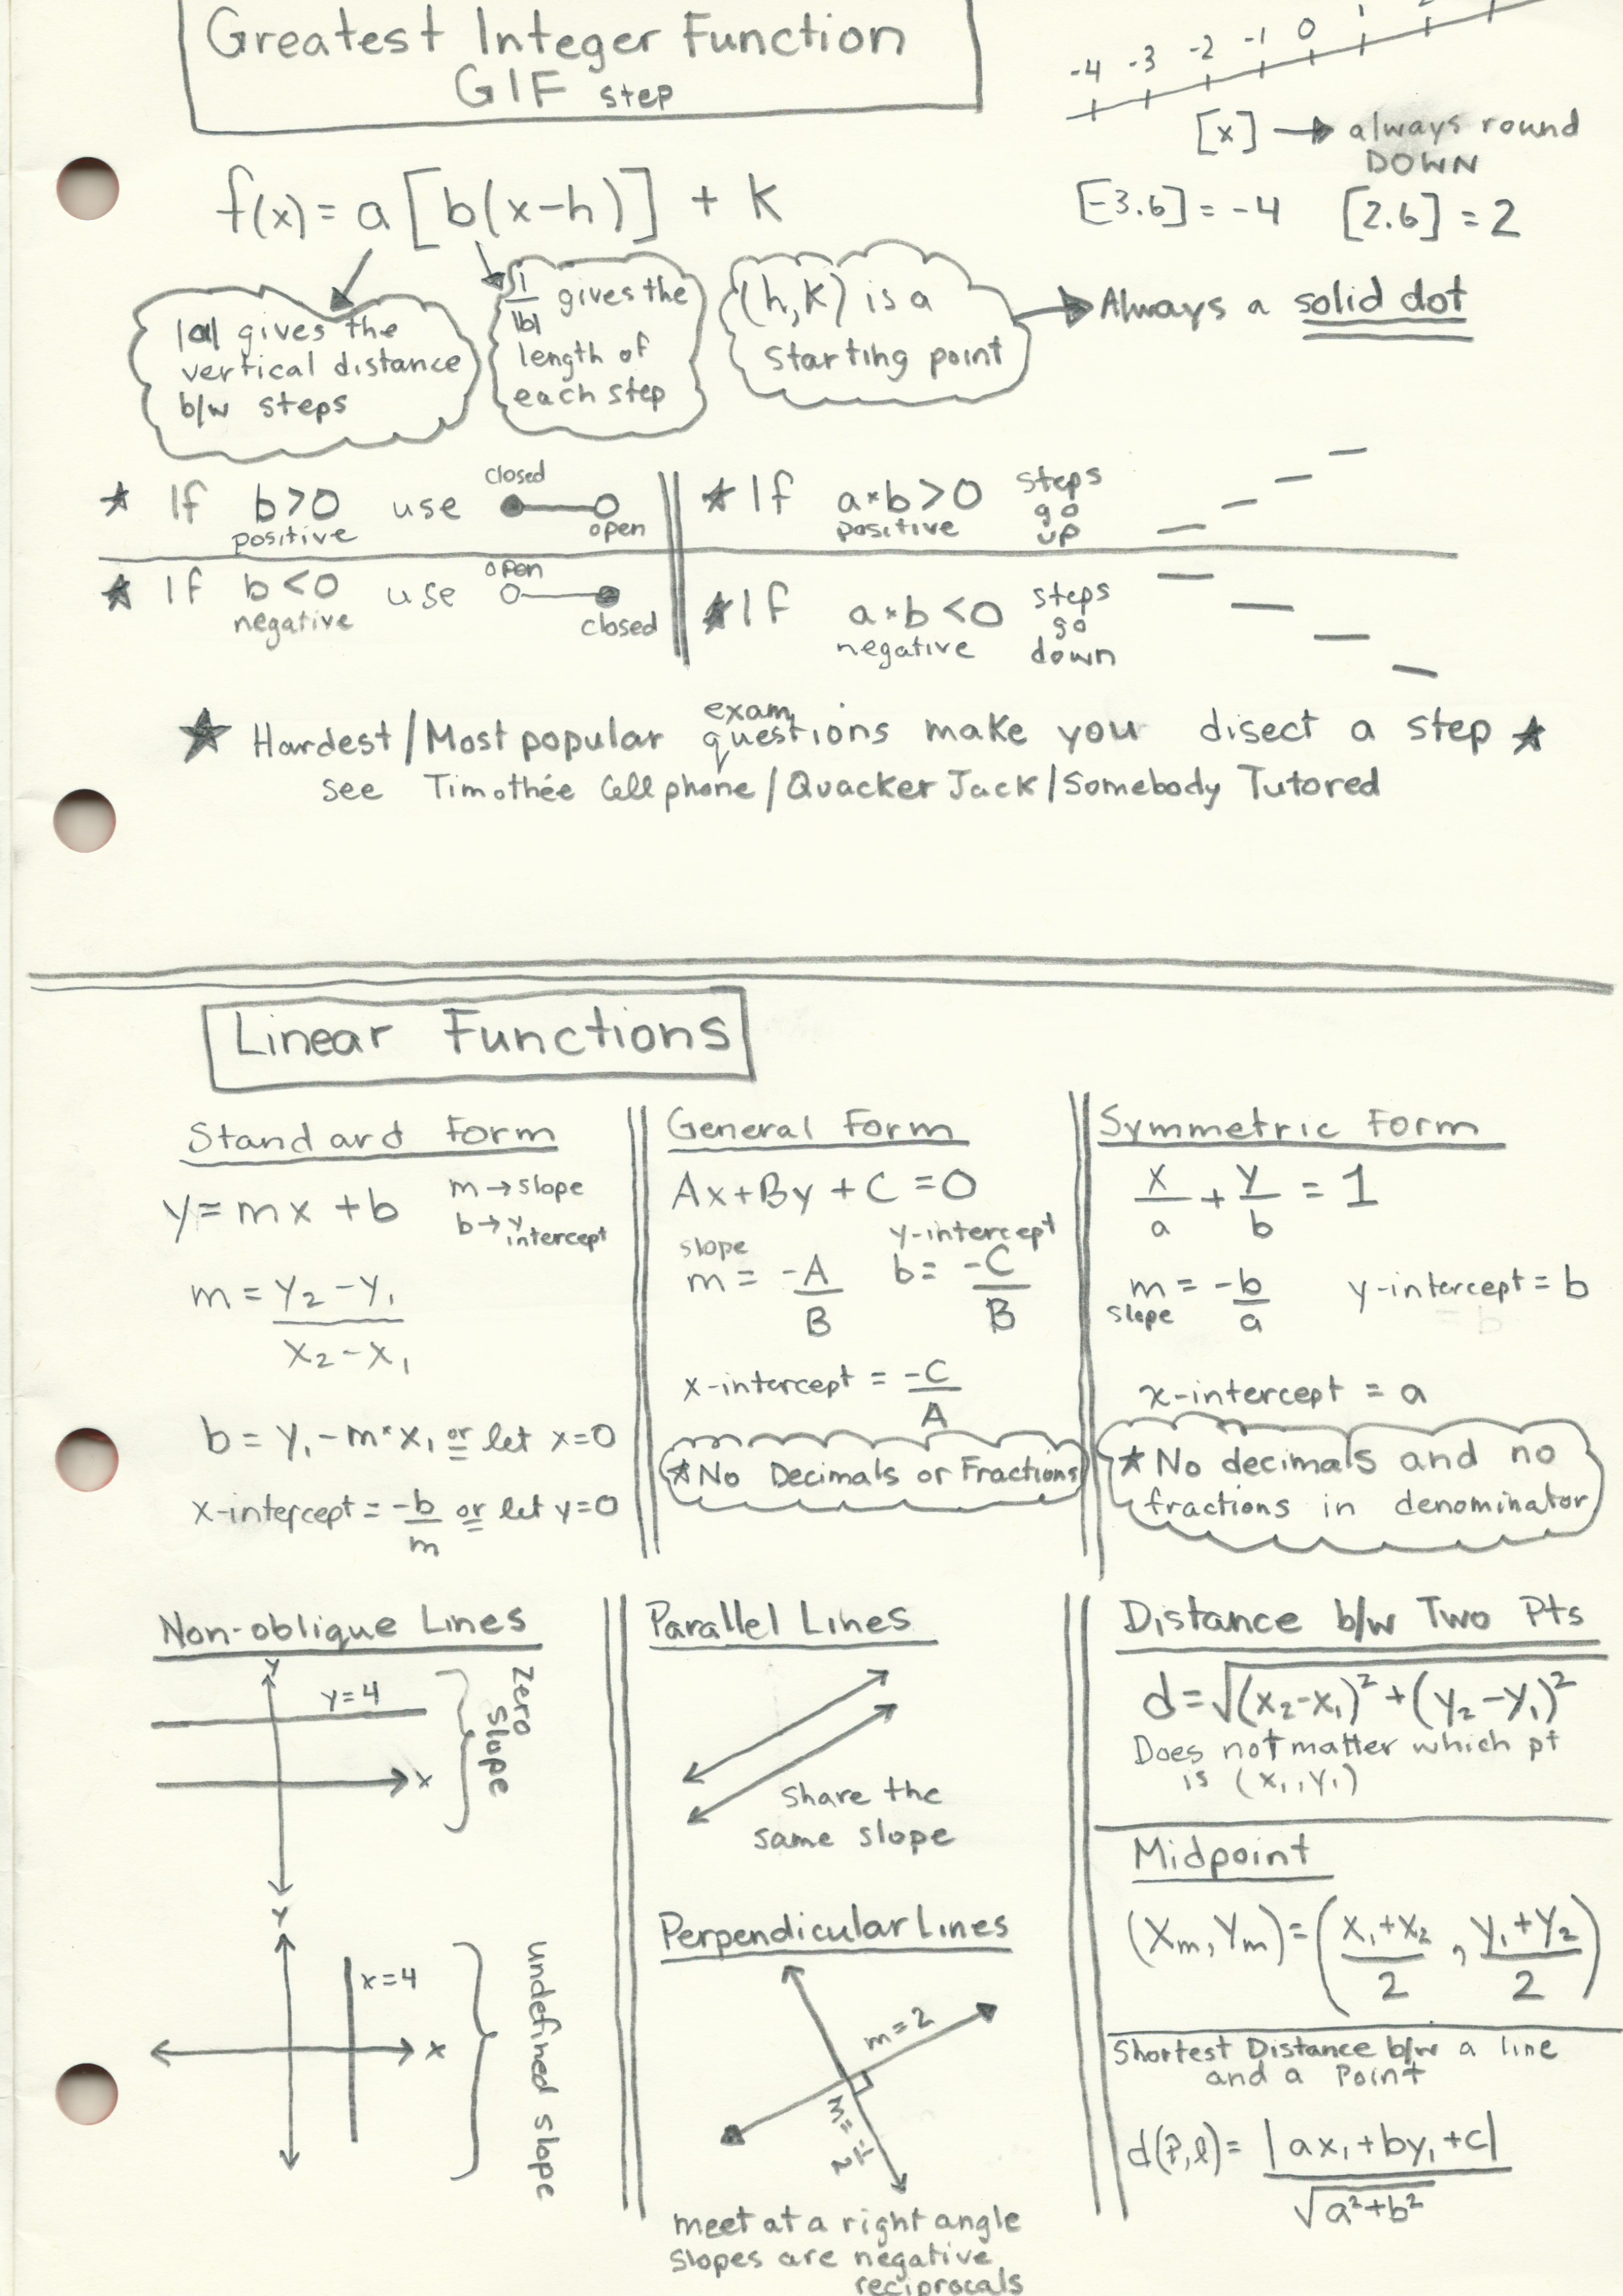 Greatest Integer Function
GIF step
-4 -3 -2 -1 0 1
[x] → always round
DOWN
[-3.6] = -4 [2.6] = 2
f(x) = a [b(x-h)] + k
|a| gives the
vertical distance
b/w steps
1/|b| gives the
length of
each step
(h,k) is a
starting point
→ Always a solid dot
★ If b>0 use
positive
closed
open
★ If a*b>0 steps
positive go
up
★ If b<0 use
negative
open
closed
★ If a*b<0 steps
negative go
down
★ Hardest/Most popular exam questions make you disect a step ★
see Timothée Cellphone/Quacker Jack/Somebody Tutored
Linear Functions
Standard Form
y = mx + b
m → slope
b → y intercept
m = y₂ - y₁
x₂ - x₁
b = y₁ - m*x₁ or let x=0
x-intercept = -b/m or let y=0
General Form
Ax + By + C = 0
slope y-intercept
m = -A/B b = -C/B
x-intercept = -C/A
★ No Decimals or Fractions
Symmetric Form
x/a + y/b = 1
m = -b/a y-intercept = b
slope
x-intercept = a
★ No decimals and no
fractions in denominator
Non-oblique Lines
y
y=4
x
Zero
slope
y
x=4
x
undefined slope
Parallel Lines
share the
same slope
Perpendicular Lines
m=2
m=-1/2
meet at a right angle
slopes are negative
reciprocals
Distance b/w Two Pts
d = √(x₂-x₁)² + (y₂-y₁)²
Does not matter which pt
is (x₁, y₁)
Midpoint
(Xm, Ym) = (x₁+x₂/2 , y₁+y₂/2)
Shortest Distance b/w a line
and a Point
d(P,l) = |ax₁ + by₁ + c|
√a²+b²